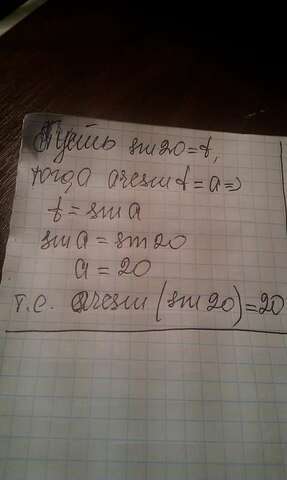 Пусть sin20=t,
тогда arcsin t=a=>
t=sin a
sin a = sin 20
a = 20
т.е. arcsin (sin 20)=20